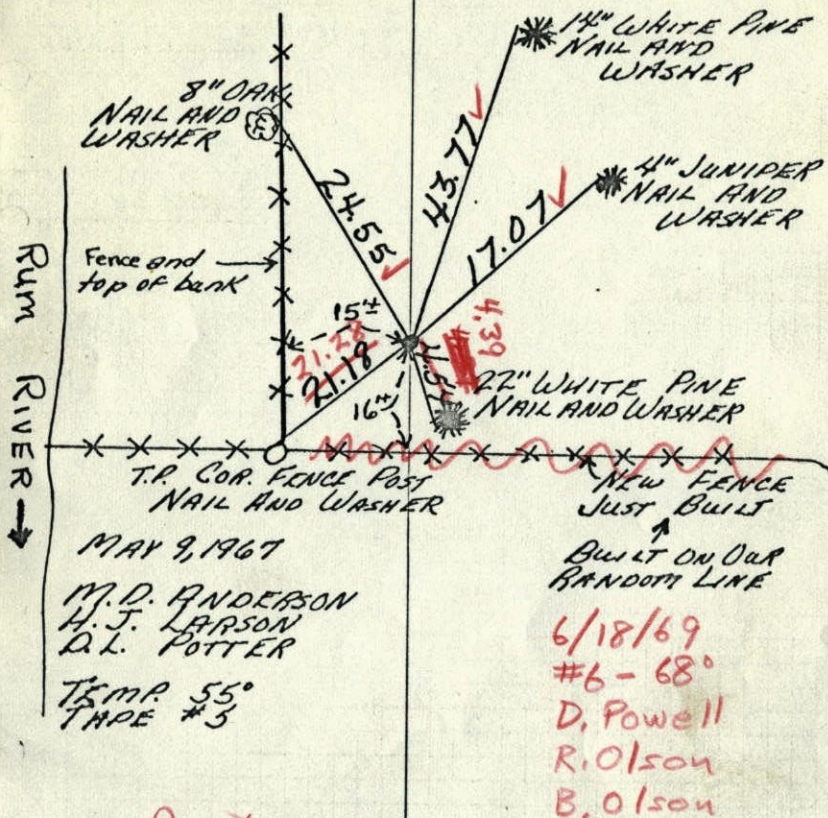 14" WHITE PINE
NAIL AND
WASHER
8" OAK
NAIL AND
WASHER
43.77
4" JUNIPER
NAIL AND
WASHER
24.55
17.07
Rum RIVER →
Fence and
top of bank
15±
21.28
21.18
4.39
16±
22" WHITE PINE
NAIL AND WASHER
T.P. COR. FENCE POST
NAIL AND WASHER
NEW FENCE
JUST BUILT
BUILT ON OUR
RANDOM LINE
MAY 9, 1967
M.D. ANDERSON
H.J. LARSON
D.L. POTTER
TEMP. 55°
TAPE #5
6/18/69
#6 - 68°
D. Powell
R. Olson
B. Olson